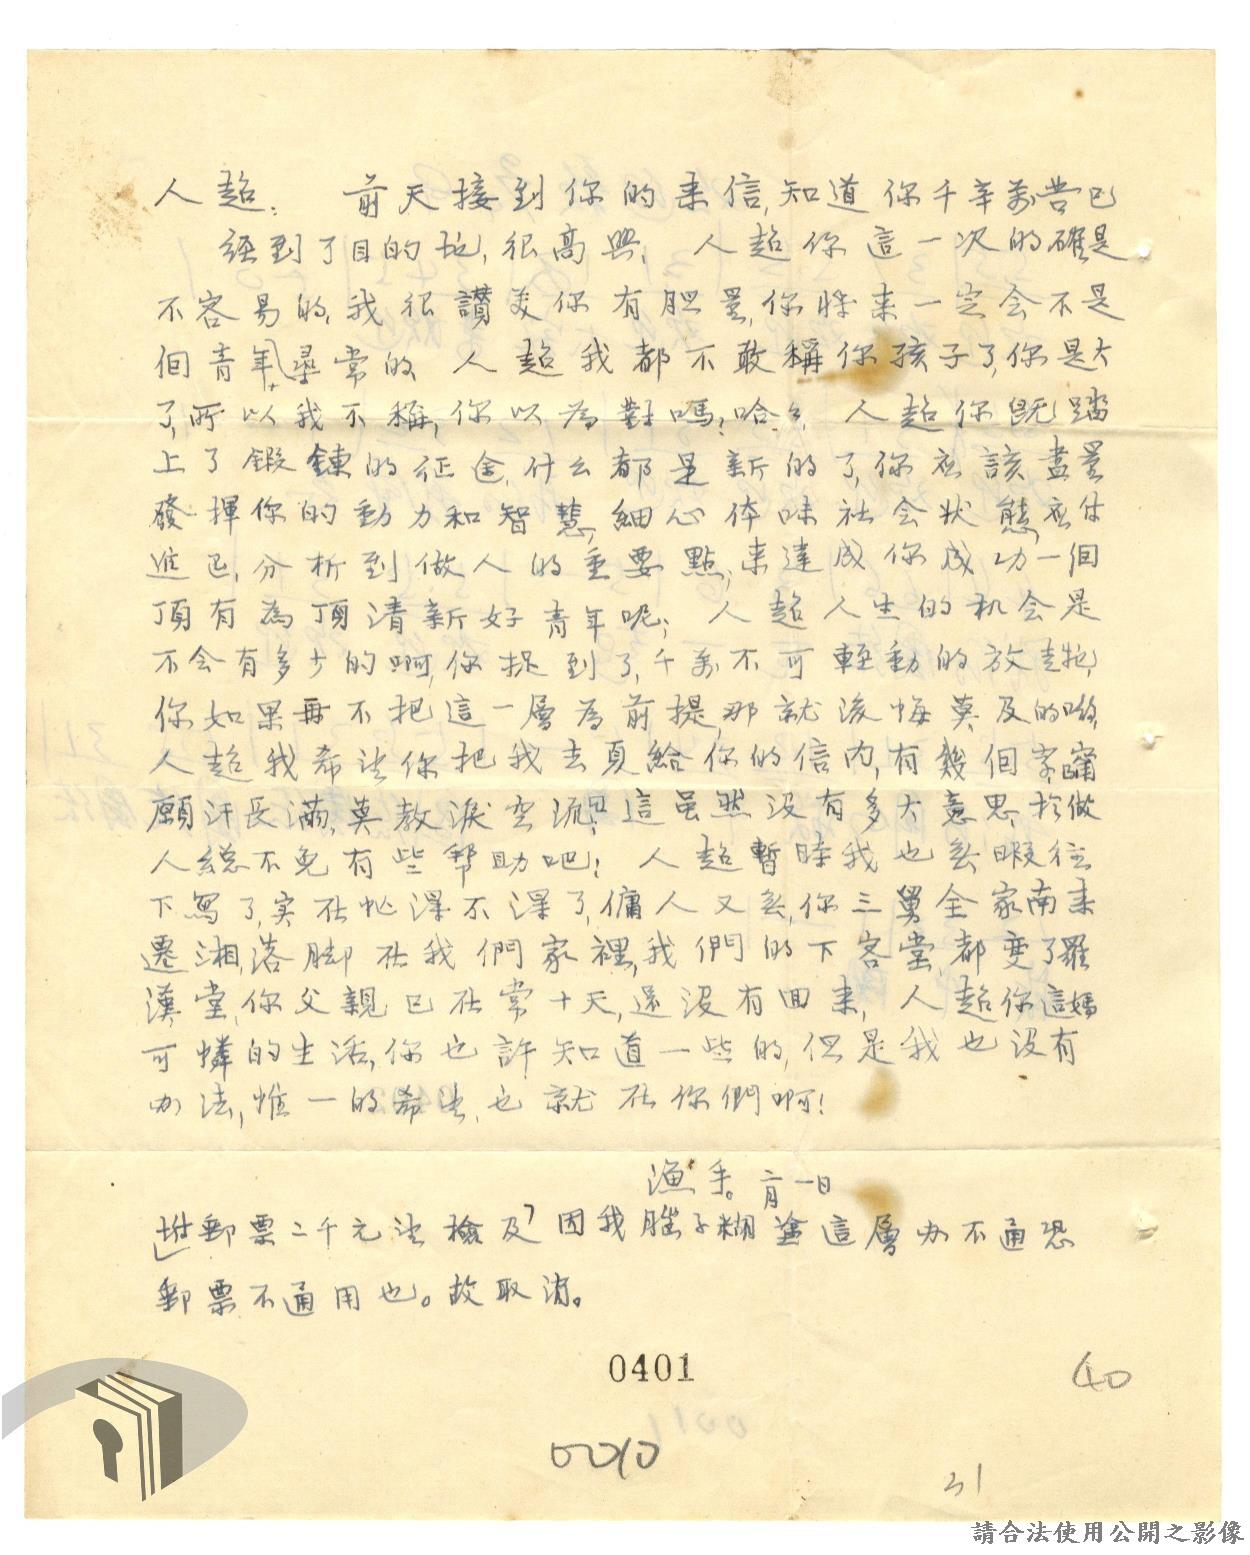 人超： 前天接到你的来信,知道你千辛萬苦已
經到了目的地,很高興, 人超你這一次的確是
不容易的,我很讚美你有胆量,你将来一定会不是
個青年尋常的 人超我都不敢稱你孩子了,你是大
了,所以我不稱,你以為對嗎?哈々, 人超你既踏
上了鍛鍊的征途,什么都是新的了,你应該盡量
發揮你的動力和智慧,細心体味社会状態,应付
進已,分析到做人的重要點,来達成你成功一個
頂有為頂清新好青年呢; 人超人生的机会是
不会有多少的啊,你捉到了,千萬不可輕動的放走牠,
你如果再不把這一層為前提,那就後悔莫及的喲,
人超我希望你把我去頁給你的信内,有幾個字
願汗長滿,莫教淚空流 這虽然没有多大意思,於做
人總不免有些帮助吧! 人超暫時我也無暇往
下寫了,实在忙得不得了,傭人又無,你三舅全家南来
遷湘,落脚在我們家裡,我們的下客堂,都变了羅
漢堂,你父親已在常十天,還没有回来, 人超你這媽
可憐的生活,你也許知道一些的,但是我也没有
办法,惟一的希望,也就在你們啊!
漁手。六月一日
坿郵票二千元望檢及 因我腦子糊塗這層办不通恐
郵票不通用也。故取消。
0401
40
0010
31
請合法使用公開之影像